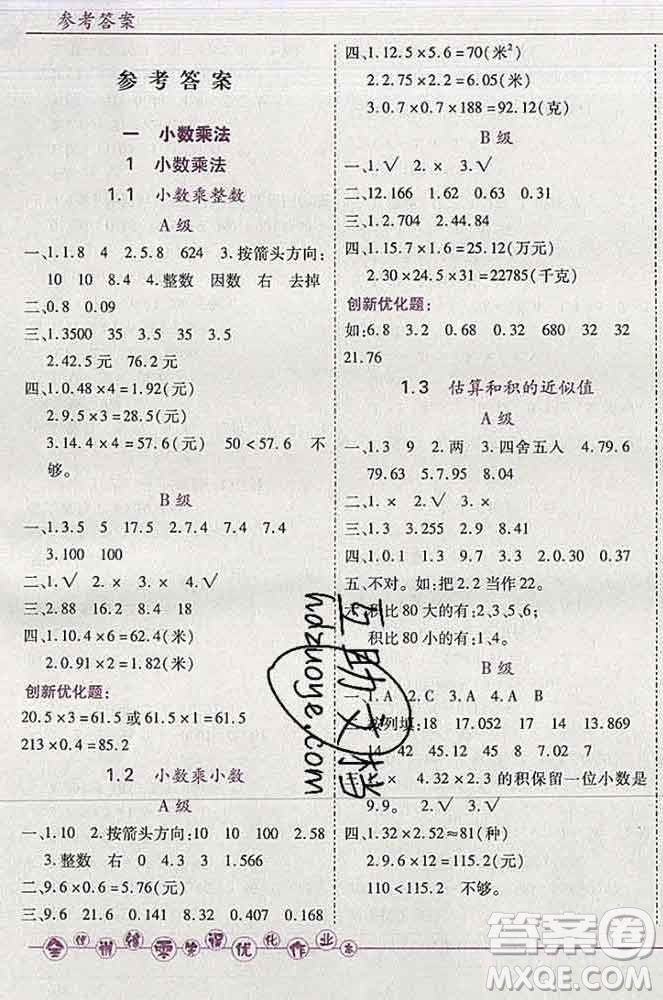 参考答案
参考答案
一 小数乘法
1 小数乘法
1.1 小数乘整数
A 级
一、1.1.8 4 2.5.8 624 3.按箭头方向:
10 10 8.4 4.整数 因数 右 去掉
二、0.8 0.09
三、1.3500 35 35 35 35
2.42.5元 76.2元
四、1.0.48×4=1.92(元)
2.9.5×3=28.5(元)
3.14.4×4=57.6(元) 50<57.6 不
够。
B 级
一、1.3.5 5 17.5 2.7.4 7.4 7.4
3.100 100
二、1.√ 2.× 3.× 4.√
三、2.88 16.2 8.4 18
四、1.10.4×6=62.4(米)
2.0.91×2=1.82(米)
创新优化题:
20.5×3=61.5或61.5×1=61.5
213×0.4=85.2
1.2 小数乘小数
A 级
一、1.10 2.按箭头方向:10 100 2.58
3.整数 右 0 4.3 1.566
二、9.6×0.6=5.76(元)
三、9.6 21.6 0.141 8.32 0.407 0.168
四、1.12.5×5.6=70(米²)
2.2.75×2.2=6.05(米)
3.0.7×0.7×188=92.12(克)
B 级
一、1.√ 2.× 3.√
二、12.166 1.62 0.63 10.2
三、1.2.704 2.44.84
四、1.15.7×1.6=25.12(万元)
2.30×24.5×31=22785(千克)
创新优化题:
如:6.8 3.2 0.68 0.32 680 32 32
21.76
1.3 估算和积的近似值
A 级
一、1.3 9 2.两 3.四舍五人 4.79.6
79.63 5.7.95 8.04
二、1.× 2.√ 3.×
三、1.3.255 2.91.53
四、1.0.1 1.9 9.7 3.3 2.0.38
五、不对。如:把2.2当作22。
积比80大的有:2、3、5、6;
积比80小的有:1、4。
B 级
一、1.A 2.C 3.A 4.A B
列填:18 17.052 17 14 13.869
42 45.12 8 7.0 9.02
× 4.32×2.3的积保留一位小数是
9.9。 2.√ 3.√
四、1.32×2.52≈81(种)
2.9.6×12=115.2(元)
110<115.2 不够。
互助文档
hdzuoye.com
优化作业
答案圈
MXQE.COM